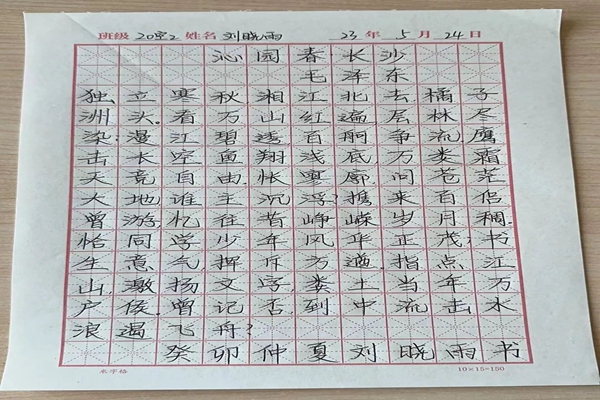 班级 20室2 姓名 刘晓雨 23 年 5 月 24 日
沁园春·长沙
毛泽东
独立寒秋,湘江北去,橘子
洲头.看万山红遍,层林尽
染;漫江碧透,百舸争流.鹰
击长空,鱼翔浅底,万类霜
天竞自由.怅寥廓,问苍茫
大地谁主沉浮?携来百侣
曾游,忆往昔峥嵘岁月稠.
恰同学少年,风华正茂;书
生意气,挥斥方遒.指点江
山,激扬文字,粪土当年万
户侯.曾记否,到中流击水
浪遏飞舟?
癸卯仲夏刘晓雨书
米字格 10×15=150